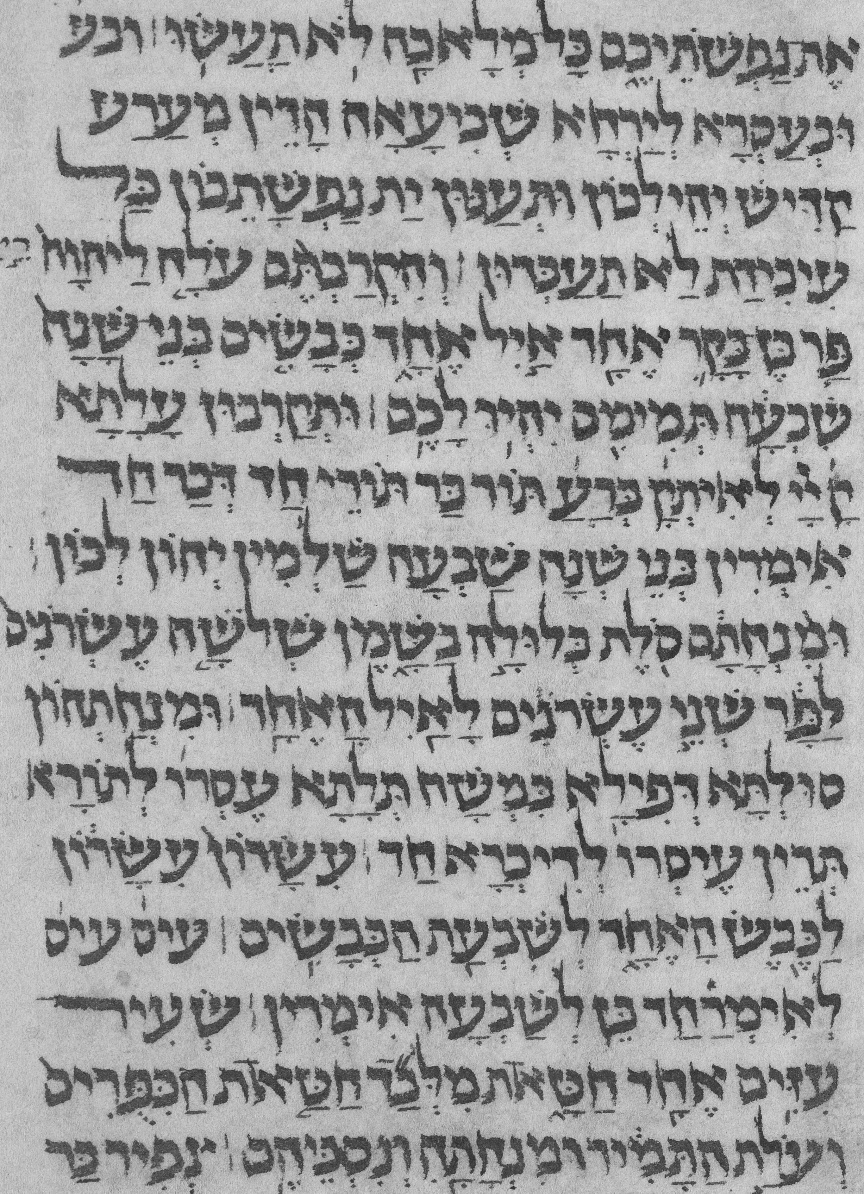 אֶת נַפְשֹׁתֵיכֶם כָּל מְלָאכָה לֹא תַעֲשׂוּ׃ ובע
וּבְעַסְרָא לְיַרְחָא שְׁבִיעָאָה הָדֵין מְעָרַע
קַדִּישׁ יְהֵי לְכוֹן וּתְעַנּוּן יַת נַפְשָׁתֵכוֹן כָּל
עִיבִידַת לַא תַעְבְּדוּן׃ וְהִקְרַבְתֶּם עֹלָה לַיהוָה
פַּר בֶּן בָּקָר אֶחָד אַיִל אֶחָד כְּבָשִׂים בְּנֵי שָׁנָה
שִׁבְעָה תְּמִימִם יִהְיוּ לָכֶם׃ וּתְקָרְבוּן עֲלָתָא
קֳ יְיָ לְאִיתְקַ בְּרַעֲ תּוֹר בַּר תּוֹרֵי חַד דְּכַר חַד
אִימְּרִין בְּנֵי שְׁנָה שִׁבְעָה שַׁלְמִין יְהוֹן לְכוֹן׃
וּמִנְחָתָם סֹלֶת בְּלוּלָה בַשָּׁמֶן שְׁלֹשָׁה עֶשְׂרֹנִים
לַפָּר שְׁנֵי עֶשְׂרֹנִים לָאַיִל הָאֶחָד׃ וּמִנְחַתְהוֹן
סוּלְתָּא דְּפִילָא בִּמְשַׁח תְּלָתָא עֶסְרוּ לְתוֹרָא
תְּרֵין עֶיסְרוּ לְדִיכְרָא חַד׃ עִשָּׂרוֹן עִשָּׂרוֹן
לַכֶּבֶשׂ הָאֶחָד לְשִׁבְעַת הַכְּבָשִׂים׃ עיס עיס
לְאִימְּרָ חַד כֵּן לְשִׁבְעָה אִימְּרִין׃ שְׂעִיר
עִזִּים אֶחָד חַטָּאת מִלְּבַד חַטַּאת הַכִּפֻּרִים
וְעֹלַת הַתָּמִיד וּמִנְחָתָהּ וְנִסְכֵּיהֶם׃ צְפִיר בַּר